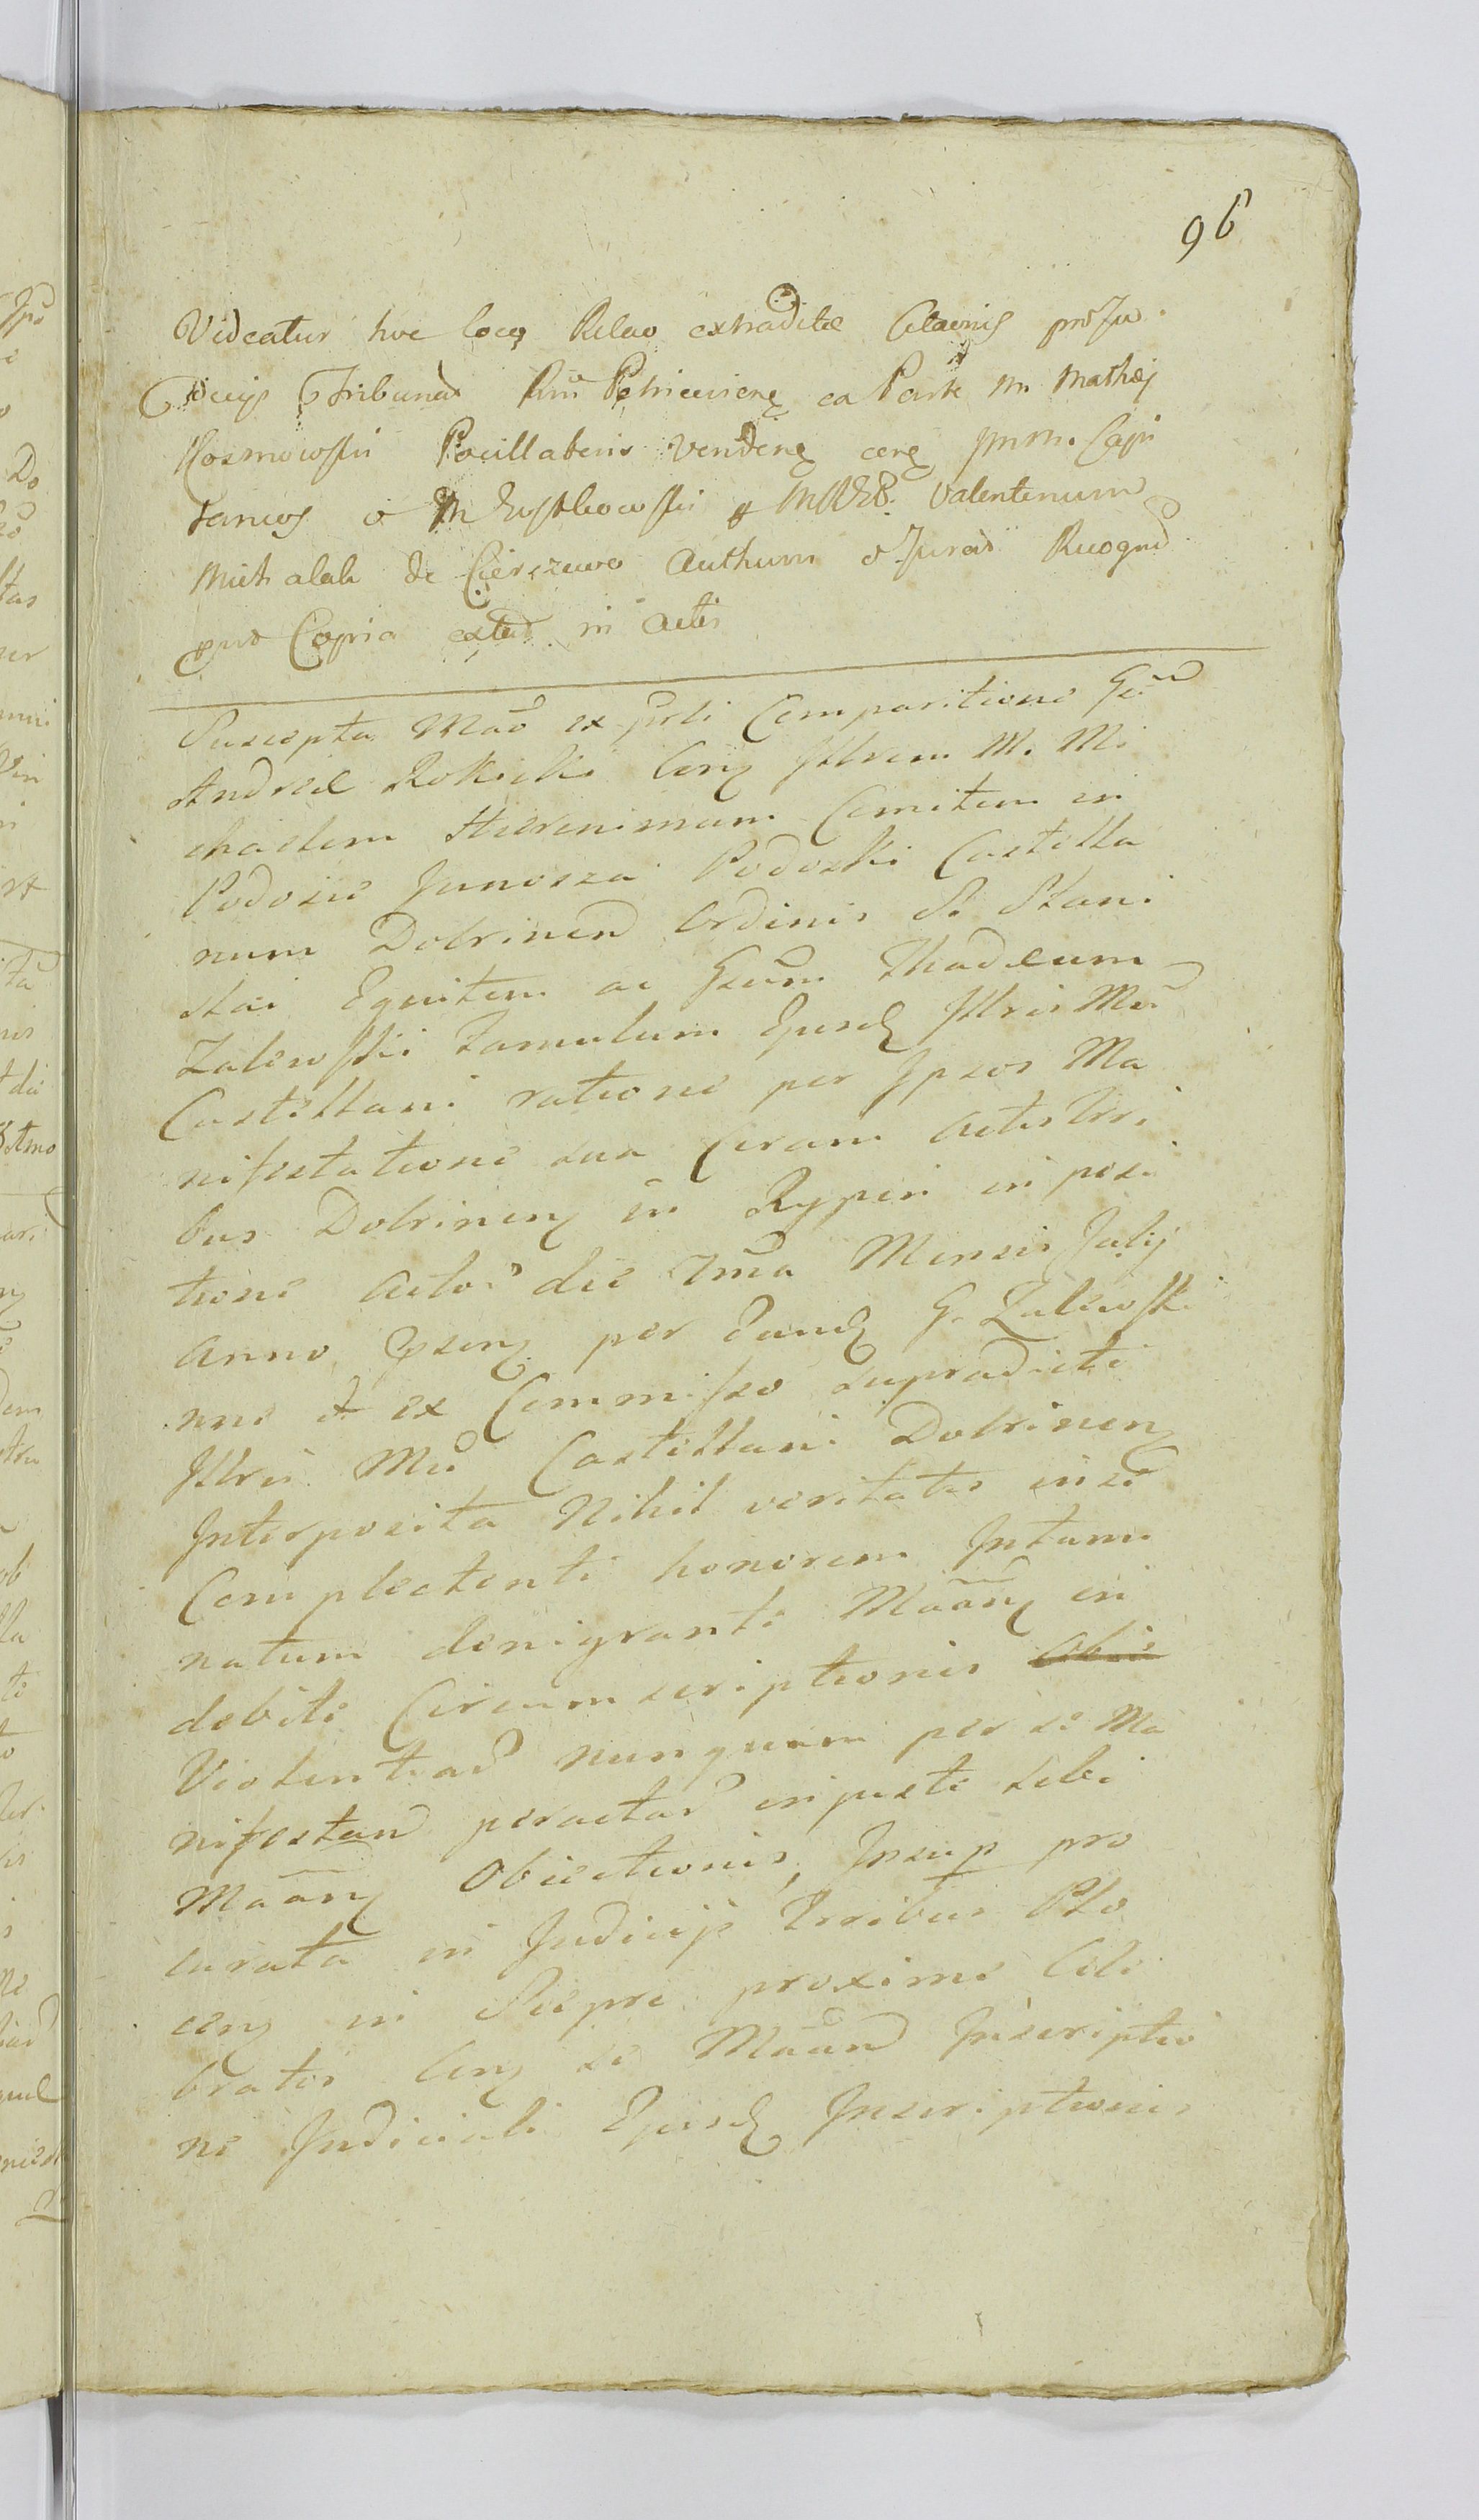 96
Videatur hoc loco Relao extraditæ Citaonis pro Ju
dicijs Tribunal Petricovien ex Parte M. Mathei
Kosmowski Pocillatoris Venden cerq
taneos M Zystkowski Valentinum
Michalak de Cierszewo Authum Jurat Recognit
quo Copia extat in Actis
Suscepta Mão ex prsti Comparitione Gsi
Andreæ Rokicki Cerq Illrem M. Mi
chaelem Hieronimum Comitem in
Podosie Junosza Podoski Castella
num Dobrinen Ordinis St. Stani
slai Equitem ac Gsum Thadæum
Zalewski Famulum Ejusd Illris Mci
Castellani ratione per Ipsos Ma
nifestatione sua Coram Actis Trri
bus Dobrinen in Rypin in posi
tione Actor die 7ma Mensis Julij
Anno Pssen per Eund G. Zalewski
nne et ex Commisso supradicti
Illris Mci Castellani Dobrinen
Interposita Nihil veritatis in se
Complectenti honorem Intami
natum denigranti Mãan in
debite Circumscriptionis
Violentiar nunquam per se Ma
nifestan peractar injuste sibi
Mãan Obiectionis, Insup pro
curata in Judicijs Trribus Plo
cen in Sierpc proxime Cele
bratis Cerq se Mãan Inscriptio
ne Judiciali Ejusd Inscriptionis